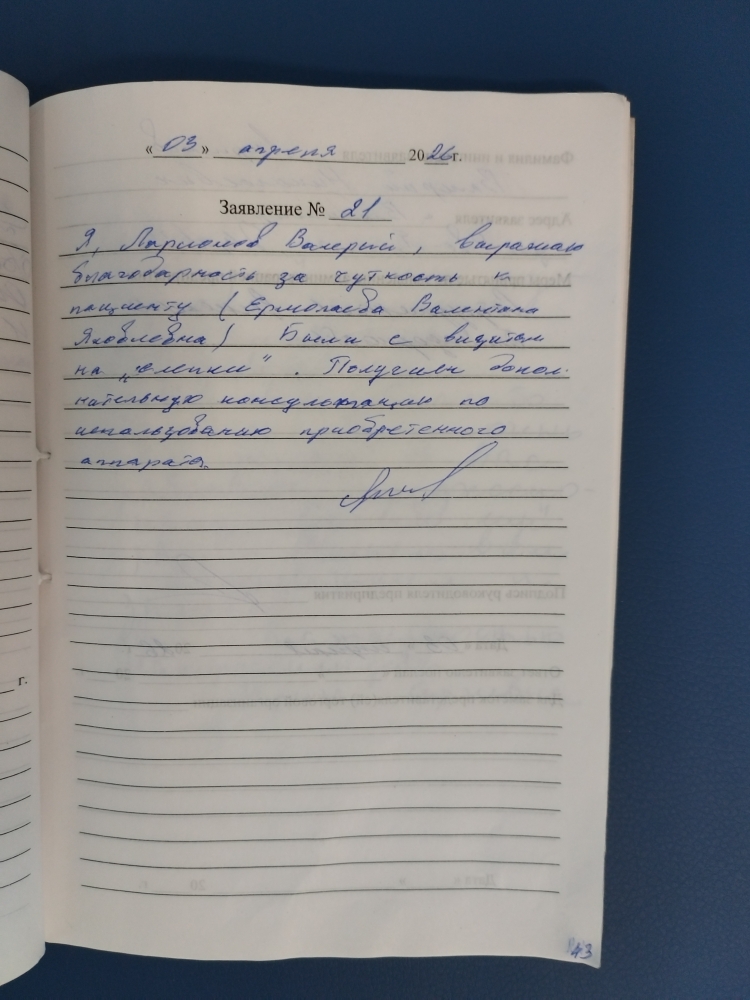 « 03 » апреля 2026 г.
Заявление № 21
Я, Ларионов Валерий, выражаю
благодарность за чуткость к
пациенту (Ермолаева Валентина
Яковлевна) Были с визитом
на „слепки". Получили допол-
нительную консультацию по
использованию приобретенного
аппарата.
г.
43